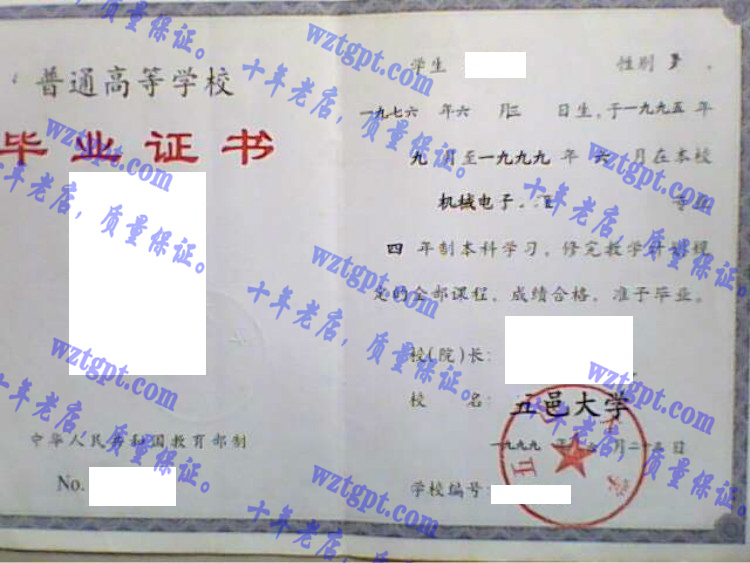 普通高等学校
毕业证书
中华人民共和国教育部制
No.
学生 性别 男 。
一九七六 年 六 月 日生,于一九九五年
九 月至一九九九 年 六 月在本校
机械电子 专业
四 年制本科学习,修完教学计划规
定的全部课程,成绩合格,准予毕业。
校(院)长:
校 名: 五邑大学
一九九九 年 月二十 日
学校编号:
五邑大学
wztgpt.com
十年老店,质量保证。
wztgpt.com
十年老店,质量保证。
wztgpt.com
十年老店,质量保证。
wztgpt.com
十年老店,质量保证。
wztgpt.com
十年老店,质量保证。
wztgpt.com
十年老店,质量保证。
wztgpt.com
十年老店,质量保证。
wztgpt.com
十年老店,质量保证。